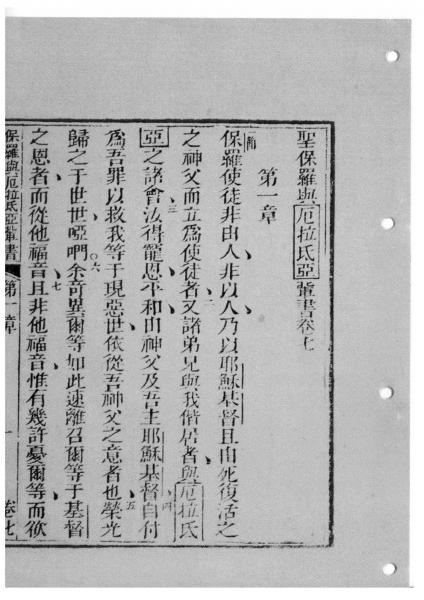 聖保羅與厄拉氏亞輩書卷七
第一章
保羅使徒非由人非以人乃以耶穌基督且由死復活之
之神父而立為使徒者二又諸弟兄與我偕居者與厄拉氏
亞之諸會三汝得寵恩平和由神父及吾主耶穌基督四自付
為吾罪以救我等于現惡世依從吾神父之意者也五榮光
歸之于世世啞吧六余奇異爾等如此速離召爾等于基督
之恩者而從他福音七且非他福音惟有幾許憂爾等而欲
保羅與厄拉氏亞輩書 第一章 一 卷七